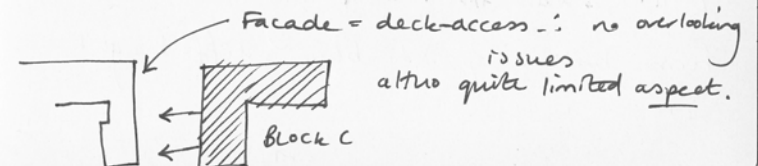 Facade = deck-access ∴ no overlooking
issues
altho quite limited aspect.
BLOCK C